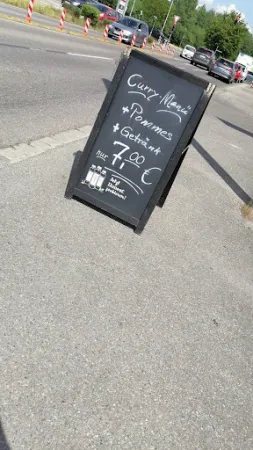 Curry-Menü
+ Pommes
+ Getränk
nur 7,00 €